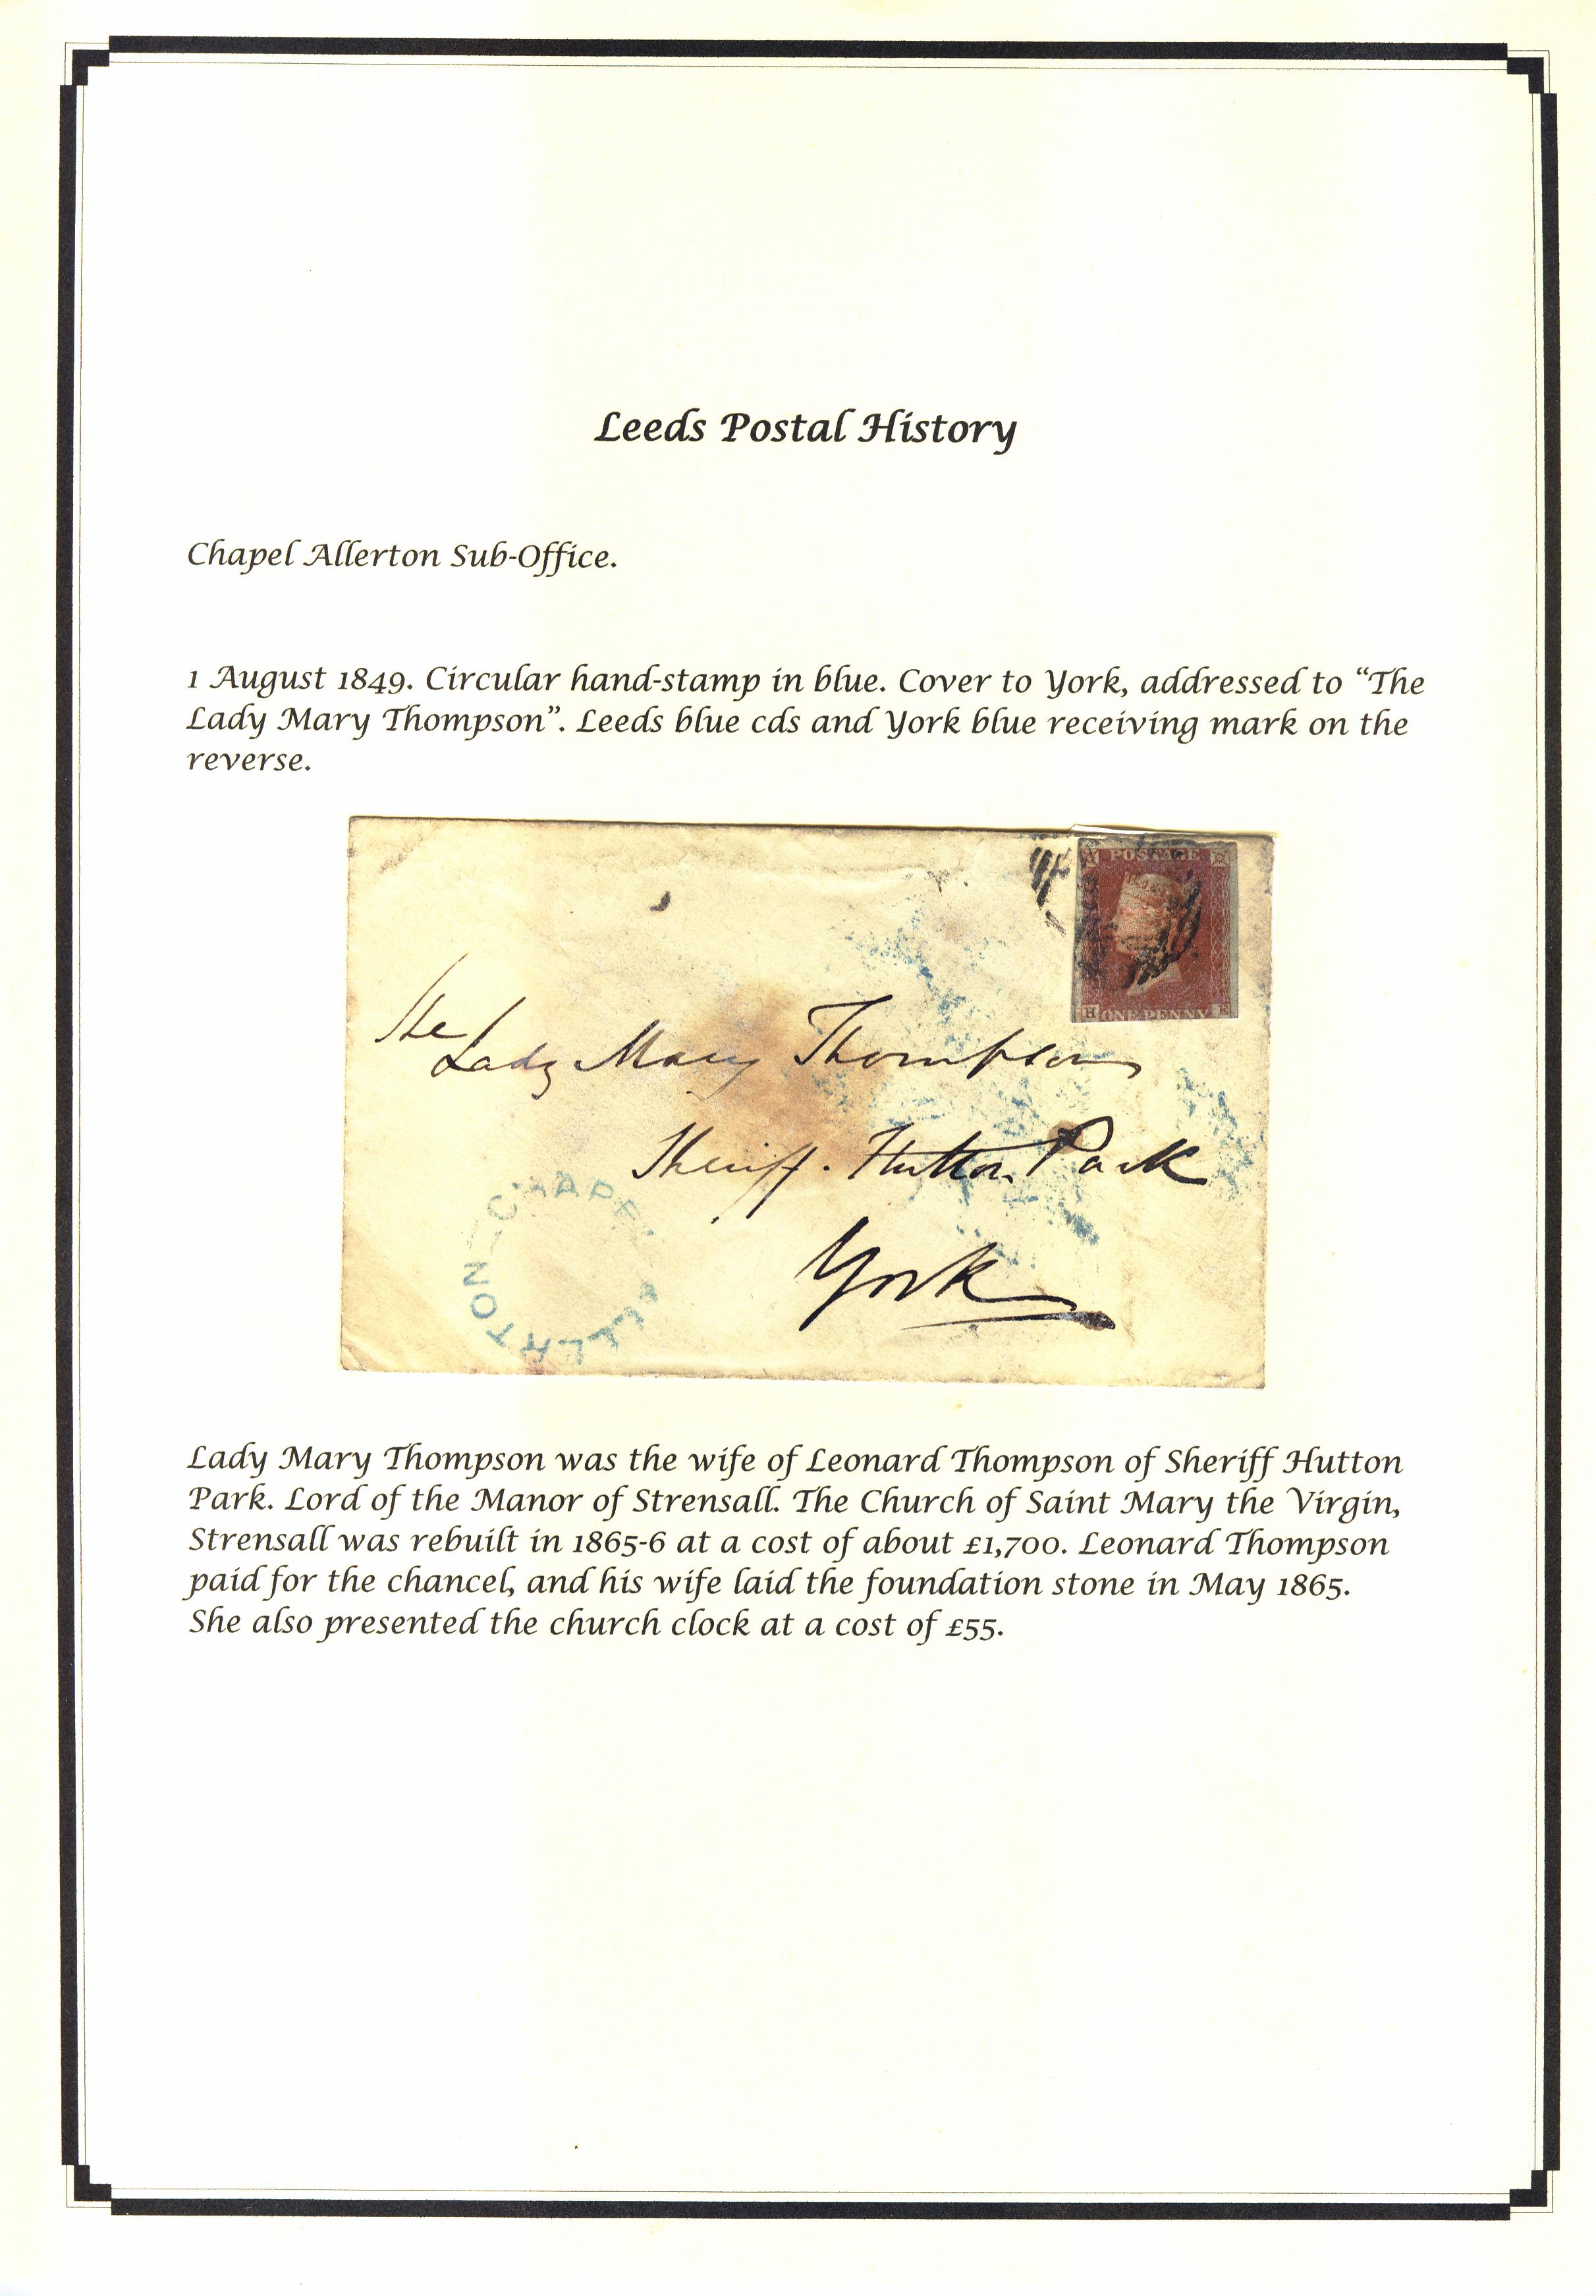 Leeds Postal History
Chapel Allerton Sub-Office.
1 August 1849. Circular hand-stamp in blue. Cover to York, addressed to “The
Lady Mary Thompson”. Leeds blue cds and York blue receiving mark on the
reverse.
POSTAGE
H ONE PENNY E
The
Lady Mary Thompson
Sheriff. Hutton Park
York
Lady Mary Thompson was the wife of Leonard Thompson of Sheriff Hutton
Park. Lord of the Manor of Strensall. The Church of Saint Mary the Virgin,
Strensall was rebuilt in 1865-6 at a cost of about £1,700. Leonard Thompson
paid for the chancel, and his wife laid the foundation stone in May 1865.
She also presented the church clock at a cost of £55.